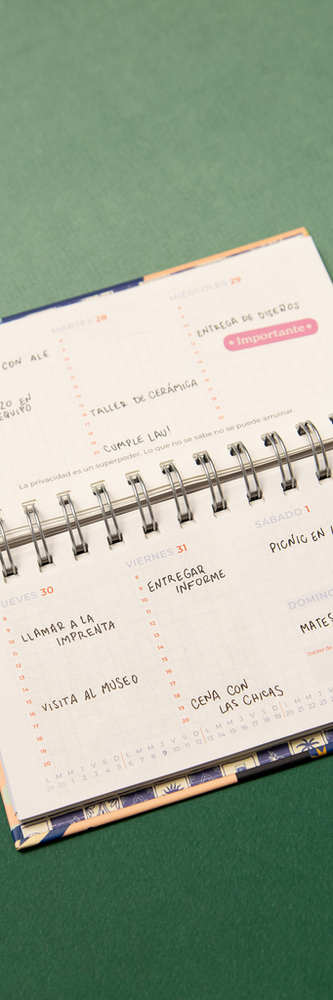 MARTES 28
MIÉRCOLES 29
CON ALE
EN
EQUIPO
TALLER DE CERÁMICA
CUMPLE LAU!
ENTREGA DE DISEÑOS
Importante
La privacidad es un superpoder. Lo que no se sabe no se puede arruinar.
JUEVES 30
VIERNES 31
SÁBADO 1
LLAMAR A LA
IMPRENTA
VISITA AL MUSEO
ENTREGAR
INFORME
CENA CON
LAS CHICAS
PICNIC EN
DOMINGO
MATES
Tracker de